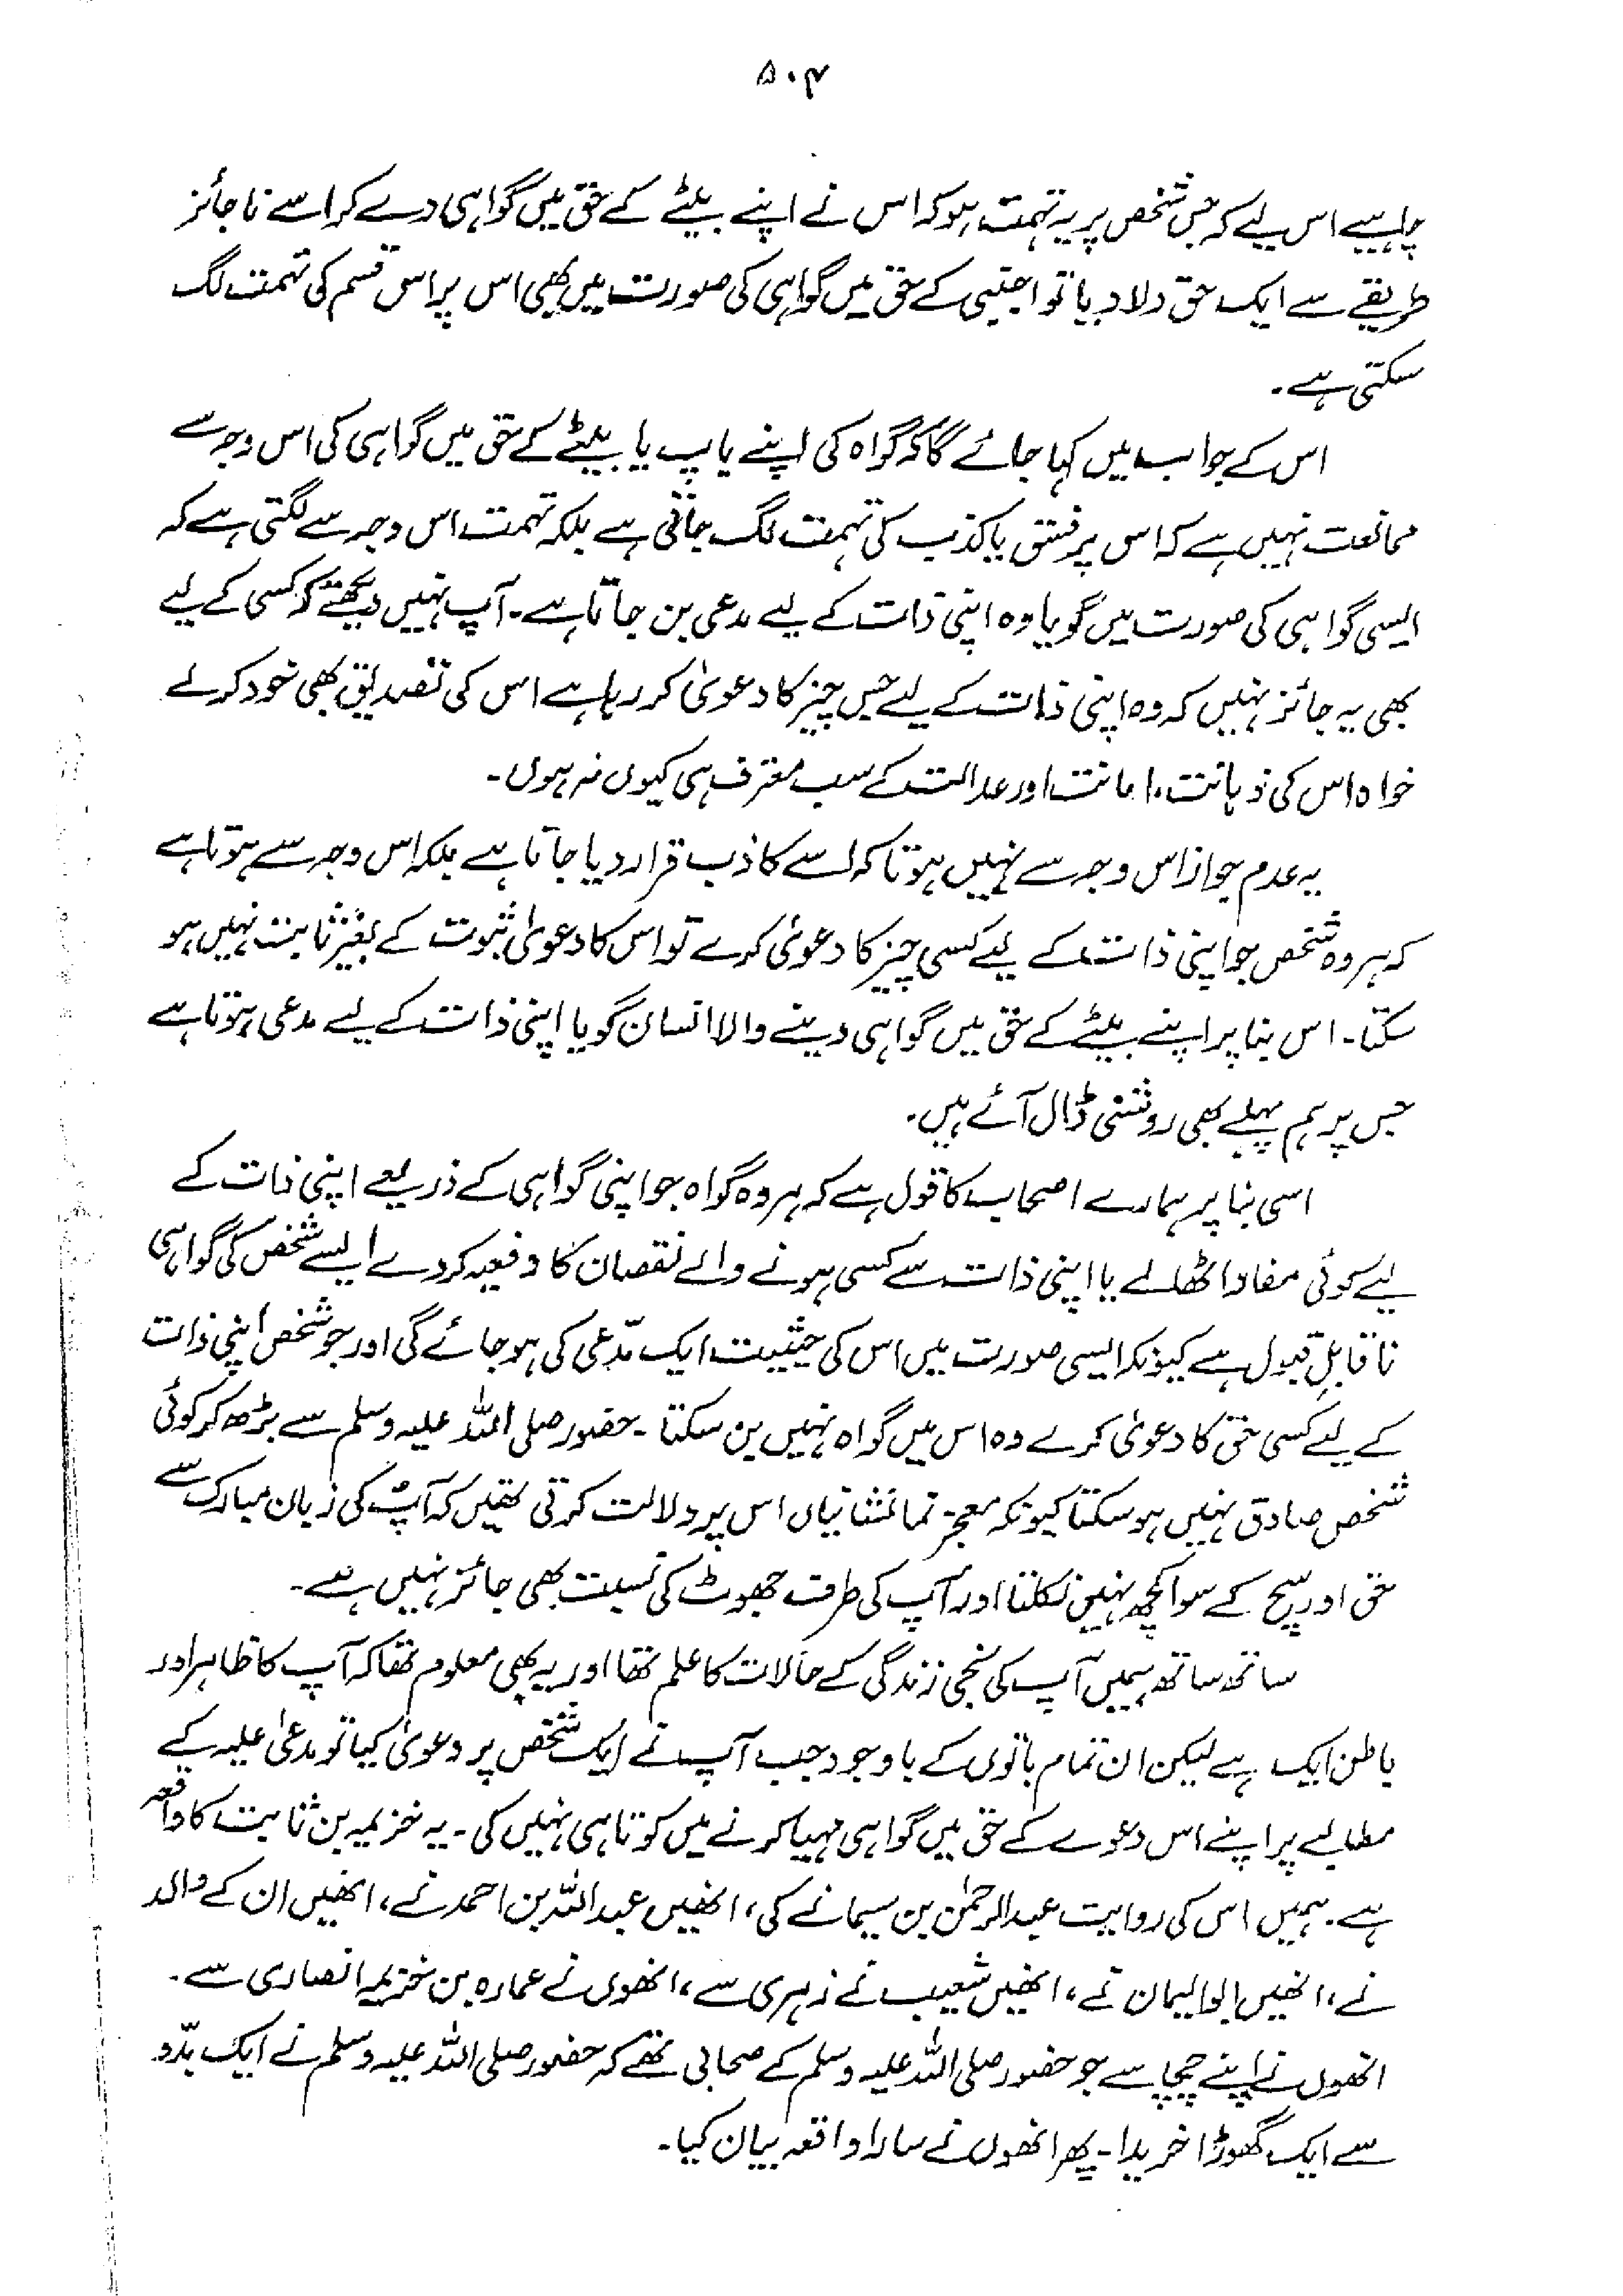 ۵۰۴
چاہیے اس لیے کہ جس شخص پر یہ تہمت ہو کہ اس نے اپنے بیٹے کے حق میں گواہی دے کر اسے ناجائز
طریقے سے ایک حق دلا دیا تو اجنبی کے حق میں گواہی کی صورت میں بھی اس پر اس قسم کی تہمت لگ
سکتی ہے۔
اس کے جواب میں کہا جائے گا کہ گواہ کی اپنے باپ یا بیٹے کے حق میں گواہی کی اس وجہ سے
ممانعت نہیں ہے کہ اس پر فسق یا کذب کی تہمت لگ جاتی ہے بلکہ تہمت اس وجہ سے لگتی ہے کہ
ایسی گواہی کی صورت میں گویا وہ اپنی ذات کے لیے مدعی بن جاتا ہے۔ آپ نہیں دیکھتے کہ کسی کے لیے
بھی یہ جائز نہیں کہ وہ اپنی ذات کے لیے جس چیز کا دعویٰ کر رہا ہے اس کی تصدیق بھی خود کرلے
خواہ اس کی ذہانت، امانت اور عدالت کے سب معترف ہی کیوں نہ ہوں۔
یہ عدم جواز اس وجہ سے نہیں ہوتا کہ اسے کاذب قرار دیا جاتا ہے بلکہ اس وجہ سے ہوتا ہے
کہ ہر وہ شخص جو اپنی ذات کے لیے کسی چیز کا دعویٰ کرے تو اس کا دعویٰ ثبوت کے بغیر ثابت نہیں ہو
سکتا۔ اس بنا پر اپنے بیٹے کے حق میں گواہی دینے والا انسان گویا اپنی ذات کے لیے مدعی ہوتا ہے
جس پر ہم پہلے بھی روشنی ڈال آئے ہیں۔
اسی بنا پر ہمارے اصحاب کا قول ہے کہ ہر وہ گواہ جو اپنی گواہی کے ذریعے اپنی ذات کے
لیے کوئی مفاد اٹھالے یا اپنی ذات سے کسی ہونے والے نقصان کا دفعیہ کردے ایسے شخص کی گواہی
ناقابلِ قبول ہے کیونکہ ایسی صورت میں اس کی حیثیت ایک مدّعی کی ہو جائے گی اور جو شخص اپنی ذات
کے لیے کسی حق کا دعویٰ کرے وہ اس میں گواہ نہیں بن سکتا۔ حضور صلی اللہ علیہ وسلم سے بڑھ کر کوئی
شخص صادق نہیں ہو سکتا کیونکہ معجز نما نشانیاں اس پر دلالت کرتی تھیں کہ آپؐ کی زبان مبارک سے
حق اور سچ کے سوا کچھ نہیں نکلتا اور آپ کی طرف جھوٹ کی نسبت بھی جائز نہیں ہے۔
ساتھ ساتھ ہمیں آپ کی نجی زندگی کے حالات کا علم تھا اور یہ بھی معلوم تھا کہ آپ کا ظاہر اور
باطن ایک ہے لیکن ان تمام باتوں کے باوجود جب آپ نے ایک شخص پر دعویٰ کیا تو مدعیٰ علیہ کے
مطالبے پر اپنے اس دعوے کے حق میں گواہی مہیا کرنے میں کوتاہی نہیں کی۔ یہ خزیمہ بن ثابت کا واقعہ
ہے۔ ہمیں اس کی روایت عبدالرحمٰن بن سیمانے کی، انھیں عبداللہ بن احمد نے، انھیں ان کے والد
نے، انھیں ابوالیمان نے، انھیں شعیب نے زہری سے، انھوں نے عمارہ بن خزیمہ انصاری سے۔
انھوں نے اپنے چچا سے جو حضور صلی اللہ علیہ وسلم کے صحابی تھے کہ حضور صلی اللہ علیہ وسلم نے ایک بدّو
سے ایک گھوڑا خریدا۔ پھر انھوں نے سارا واقعہ بیان کیا۔